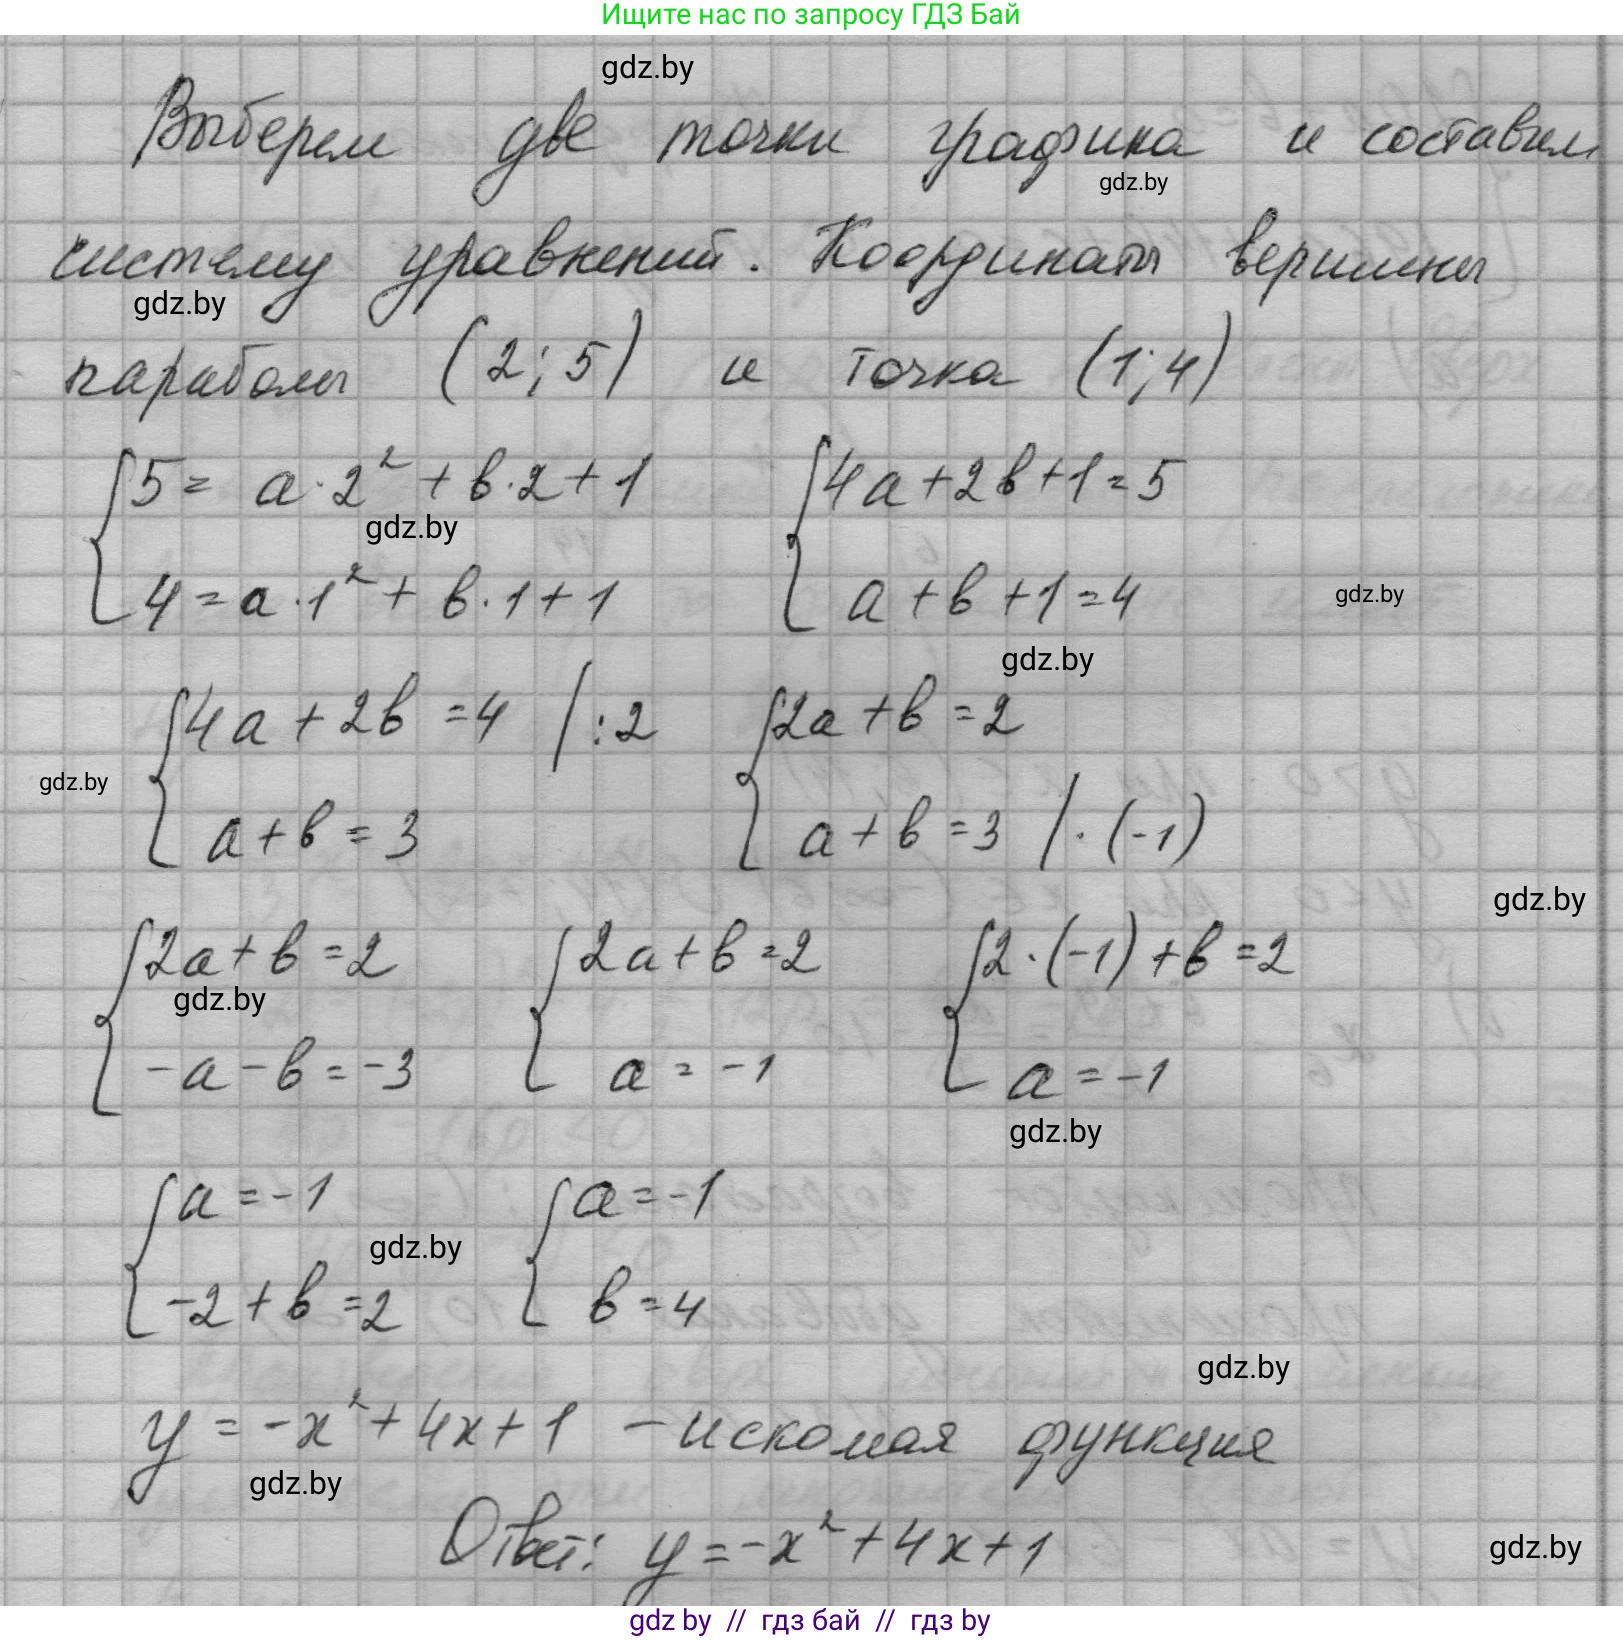 Ищите нас по запросу ГДЗ Бай
gdz.by
Выберем две точки графика и составим
gdz.by
систему уравнений. Координаты вершины
gdz.by
параболы (2; 5) и точка (1; 4)
{5 = a·2² + b·2 + 1 {4a + 2b + 1 = 5
gdz.by
4 = a·1² + b·1 + 1 a + b + 1 = 4
gdz.by
gdz.by
{4a + 2b = 4 /:2 {2a + b = 2
gdz.by
a + b = 3 a + b = 3 /·(-1)
gdz.by
{2a + b = 2 {2a + b = 2 {2·(-1) + b = 2
gdz.by
-a - b = -3 a = -1 a = -1
gdz.by
{a = -1 {a = -1
gdz.by
-2 + b = 2 b = 4
gdz.by
y = -x² + 4x + 1 - искомая функция
gdz.by
Ответ: y = -x² + 4x + 1
gdz.by
gdz by // гдз бай // гдз by